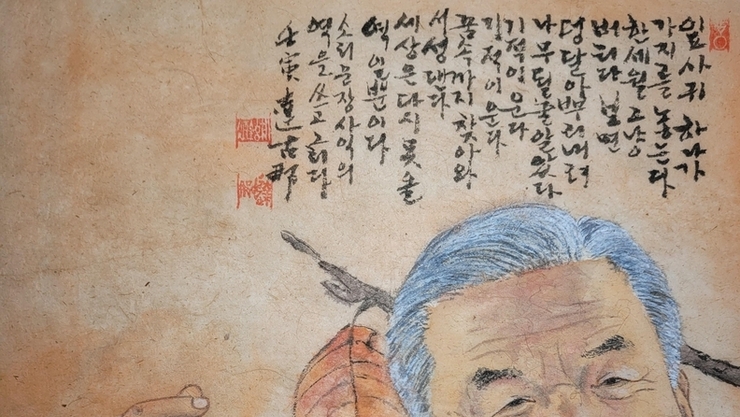 잎사귀 하나가
가지를 놓는다
한세월 그냥
버티다 보면
덩달아뿌리내려
나무될줄알았다
기적이 운다
기적이 운다
꿈속까지 찾아와
서성댄다
세상은 다시
역일뿐이다
소리꾼장사익의
역을 쓰고 그리다
壬寅 古